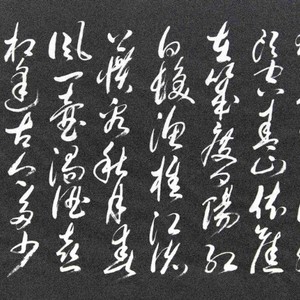 頭空青山依舊
在幾度夕陽紅
白髮漁樵江渚
上慣看秋月春
風一壺濁酒喜
相逢古今多少